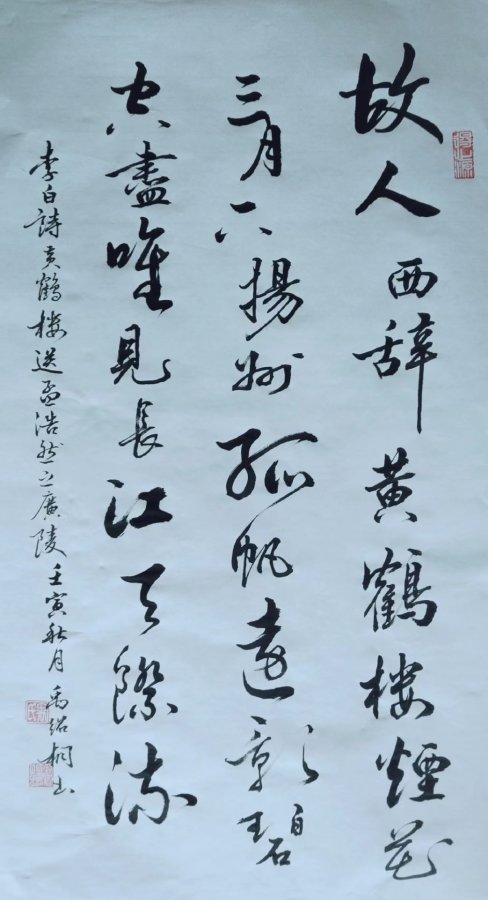 故人西辞黄鹤樓煙花
三月下揚州孤帆遠影碧
空盡唯見長江天際流
李白詩黄鶴樓送孟浩然之廣陵 壬寅秋月 禹紹桐书